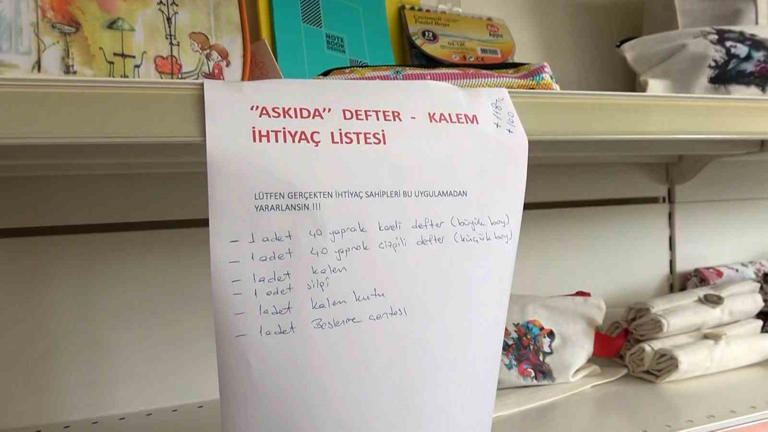 NOTE
BOOK
DESIGN
12
"ASKIDA" DEFTER - KALEM
İHTİYAÇ LİSTESİ
LÜTFEN GERÇEKTEN İHTİYAÇ SAHİPLERİ BU UYGULAMADAN
YARARLANSIN !!!
- 1 adet 40 yaprak kareli defter (büyük boy)
- 1 adet 40 yaprak çizgili defter (küçük boy)
- 1 adet kalem
- 1 adet silgi
- 1 adet kalem kutu
- 1 adet Beslenme çantası